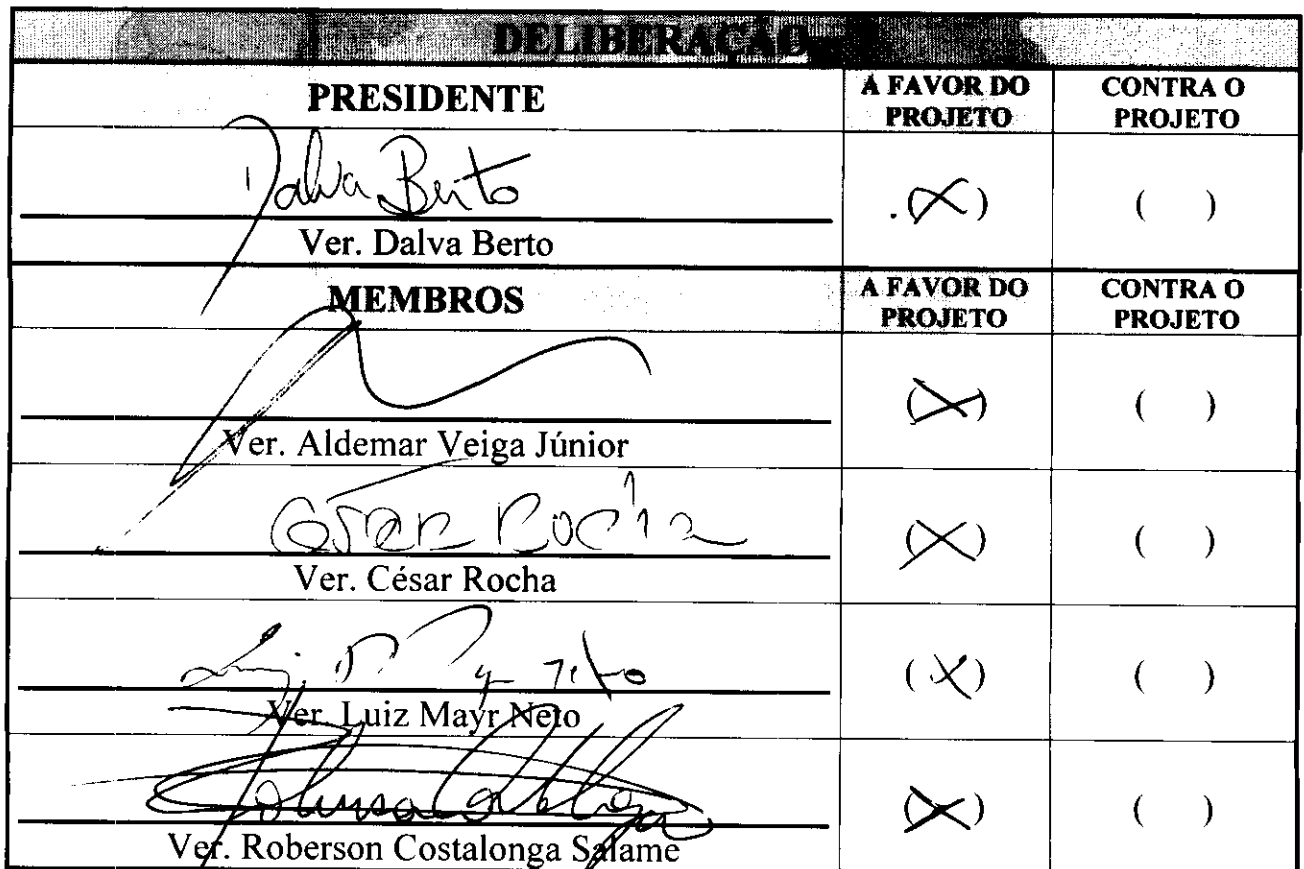 DELIBERAÇÃO
PRESIDENTE
A FAVOR DO PROJETO
CONTRA O PROJETO
Dalva Berto
Ver. Dalva Berto
(X)
( )
MEMBROS
A FAVOR DO PROJETO
CONTRA O PROJETO
Ver. Aldemar Veiga Júnior
(X)
( )
César Rocha
Ver. César Rocha
(X)
( )
Ver. Luiz Mayr Neto
(X)
( )
Ver. Roberson Costalonga Salame
(X)
( )